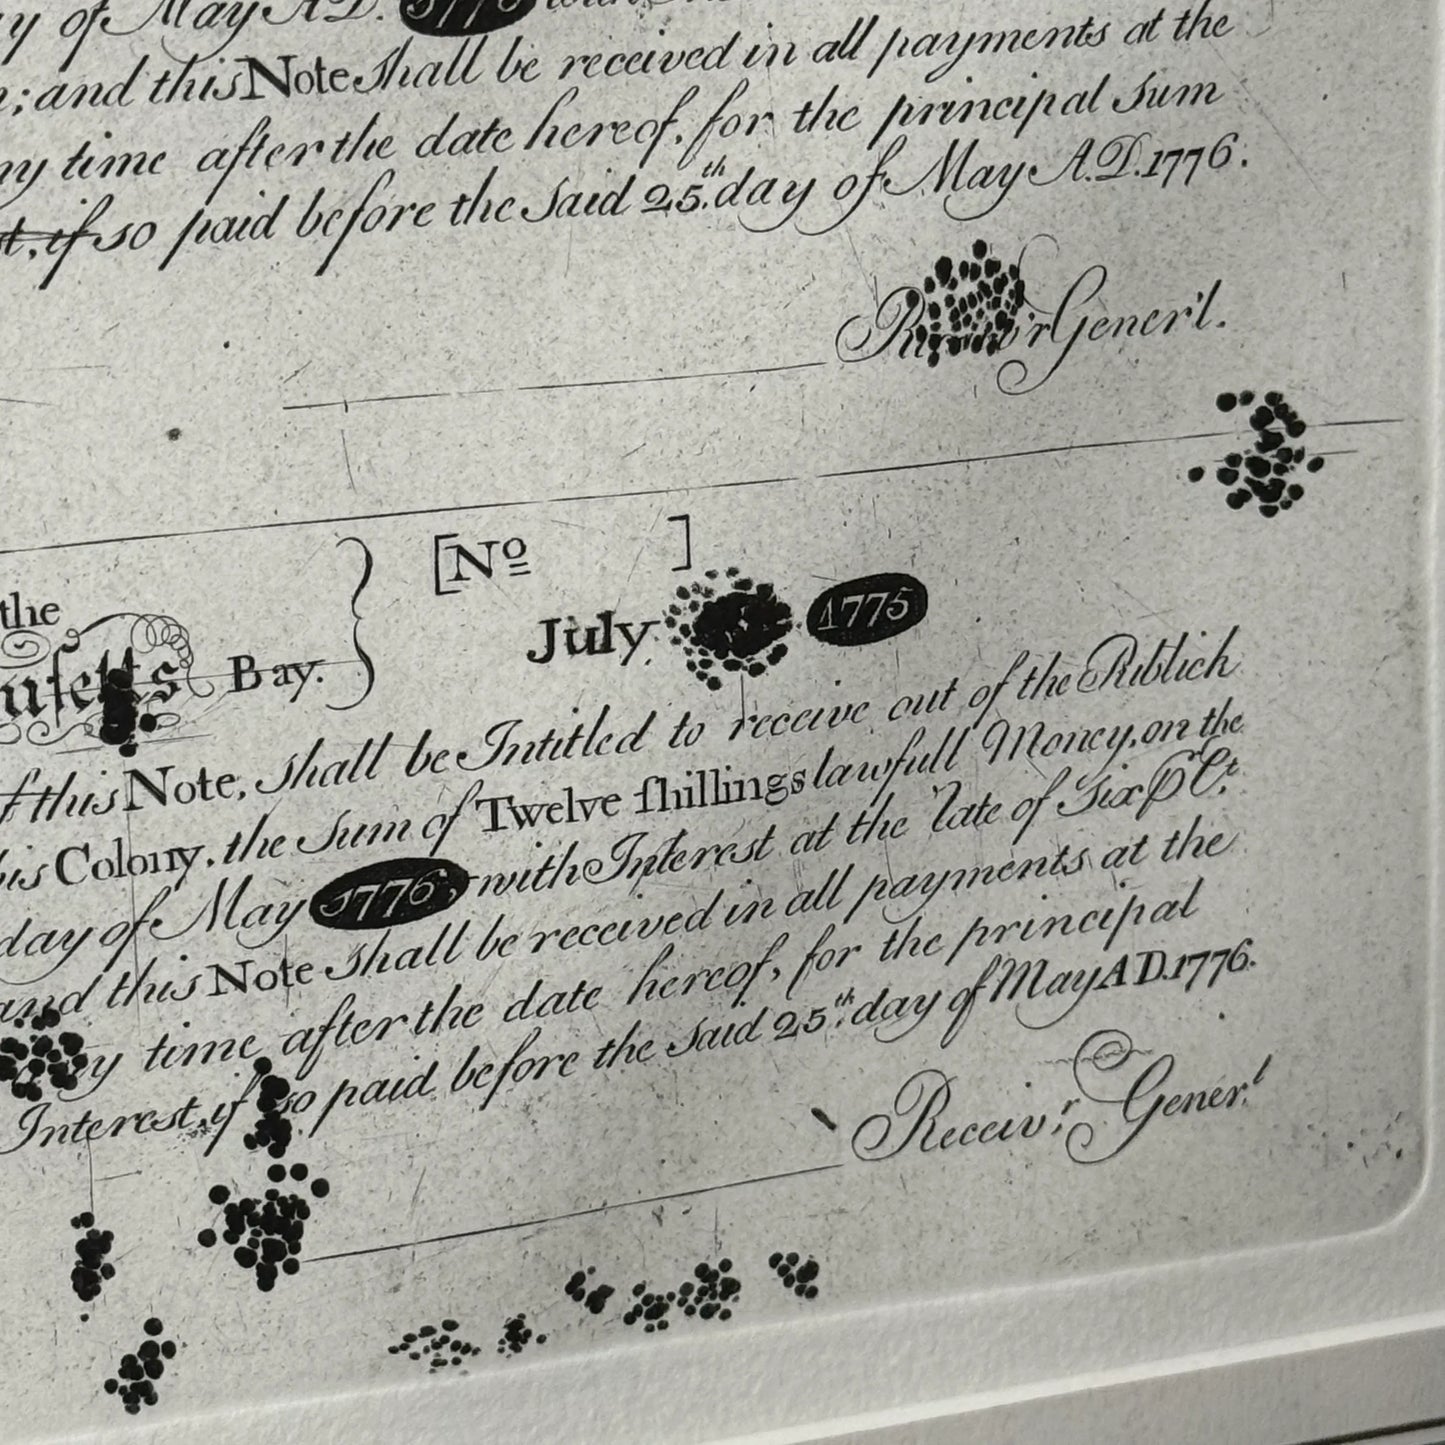 y of May A.D. 1776
; and this Note shall be received in all payments at the
ny time after the date hereof, for the principal Sum
t, if so paid before the said 25.th day of May A.D. 1776.
Gener'l.
[No ]
the
July 1775
usetts Bay.
f this Note, shall be Intitled to receive out of the Publick
his Colony, the Sum of Twelve ſhillings lawfull Money, on the
day of May 1776, with Interest at the Rate of Six P Ct.
and this Note shall be received in all payments at the
y time after the date hereof, for the principal
Interest, if so paid before the said 25.th day of May A D. 1776.
Receiv.r Gener.l